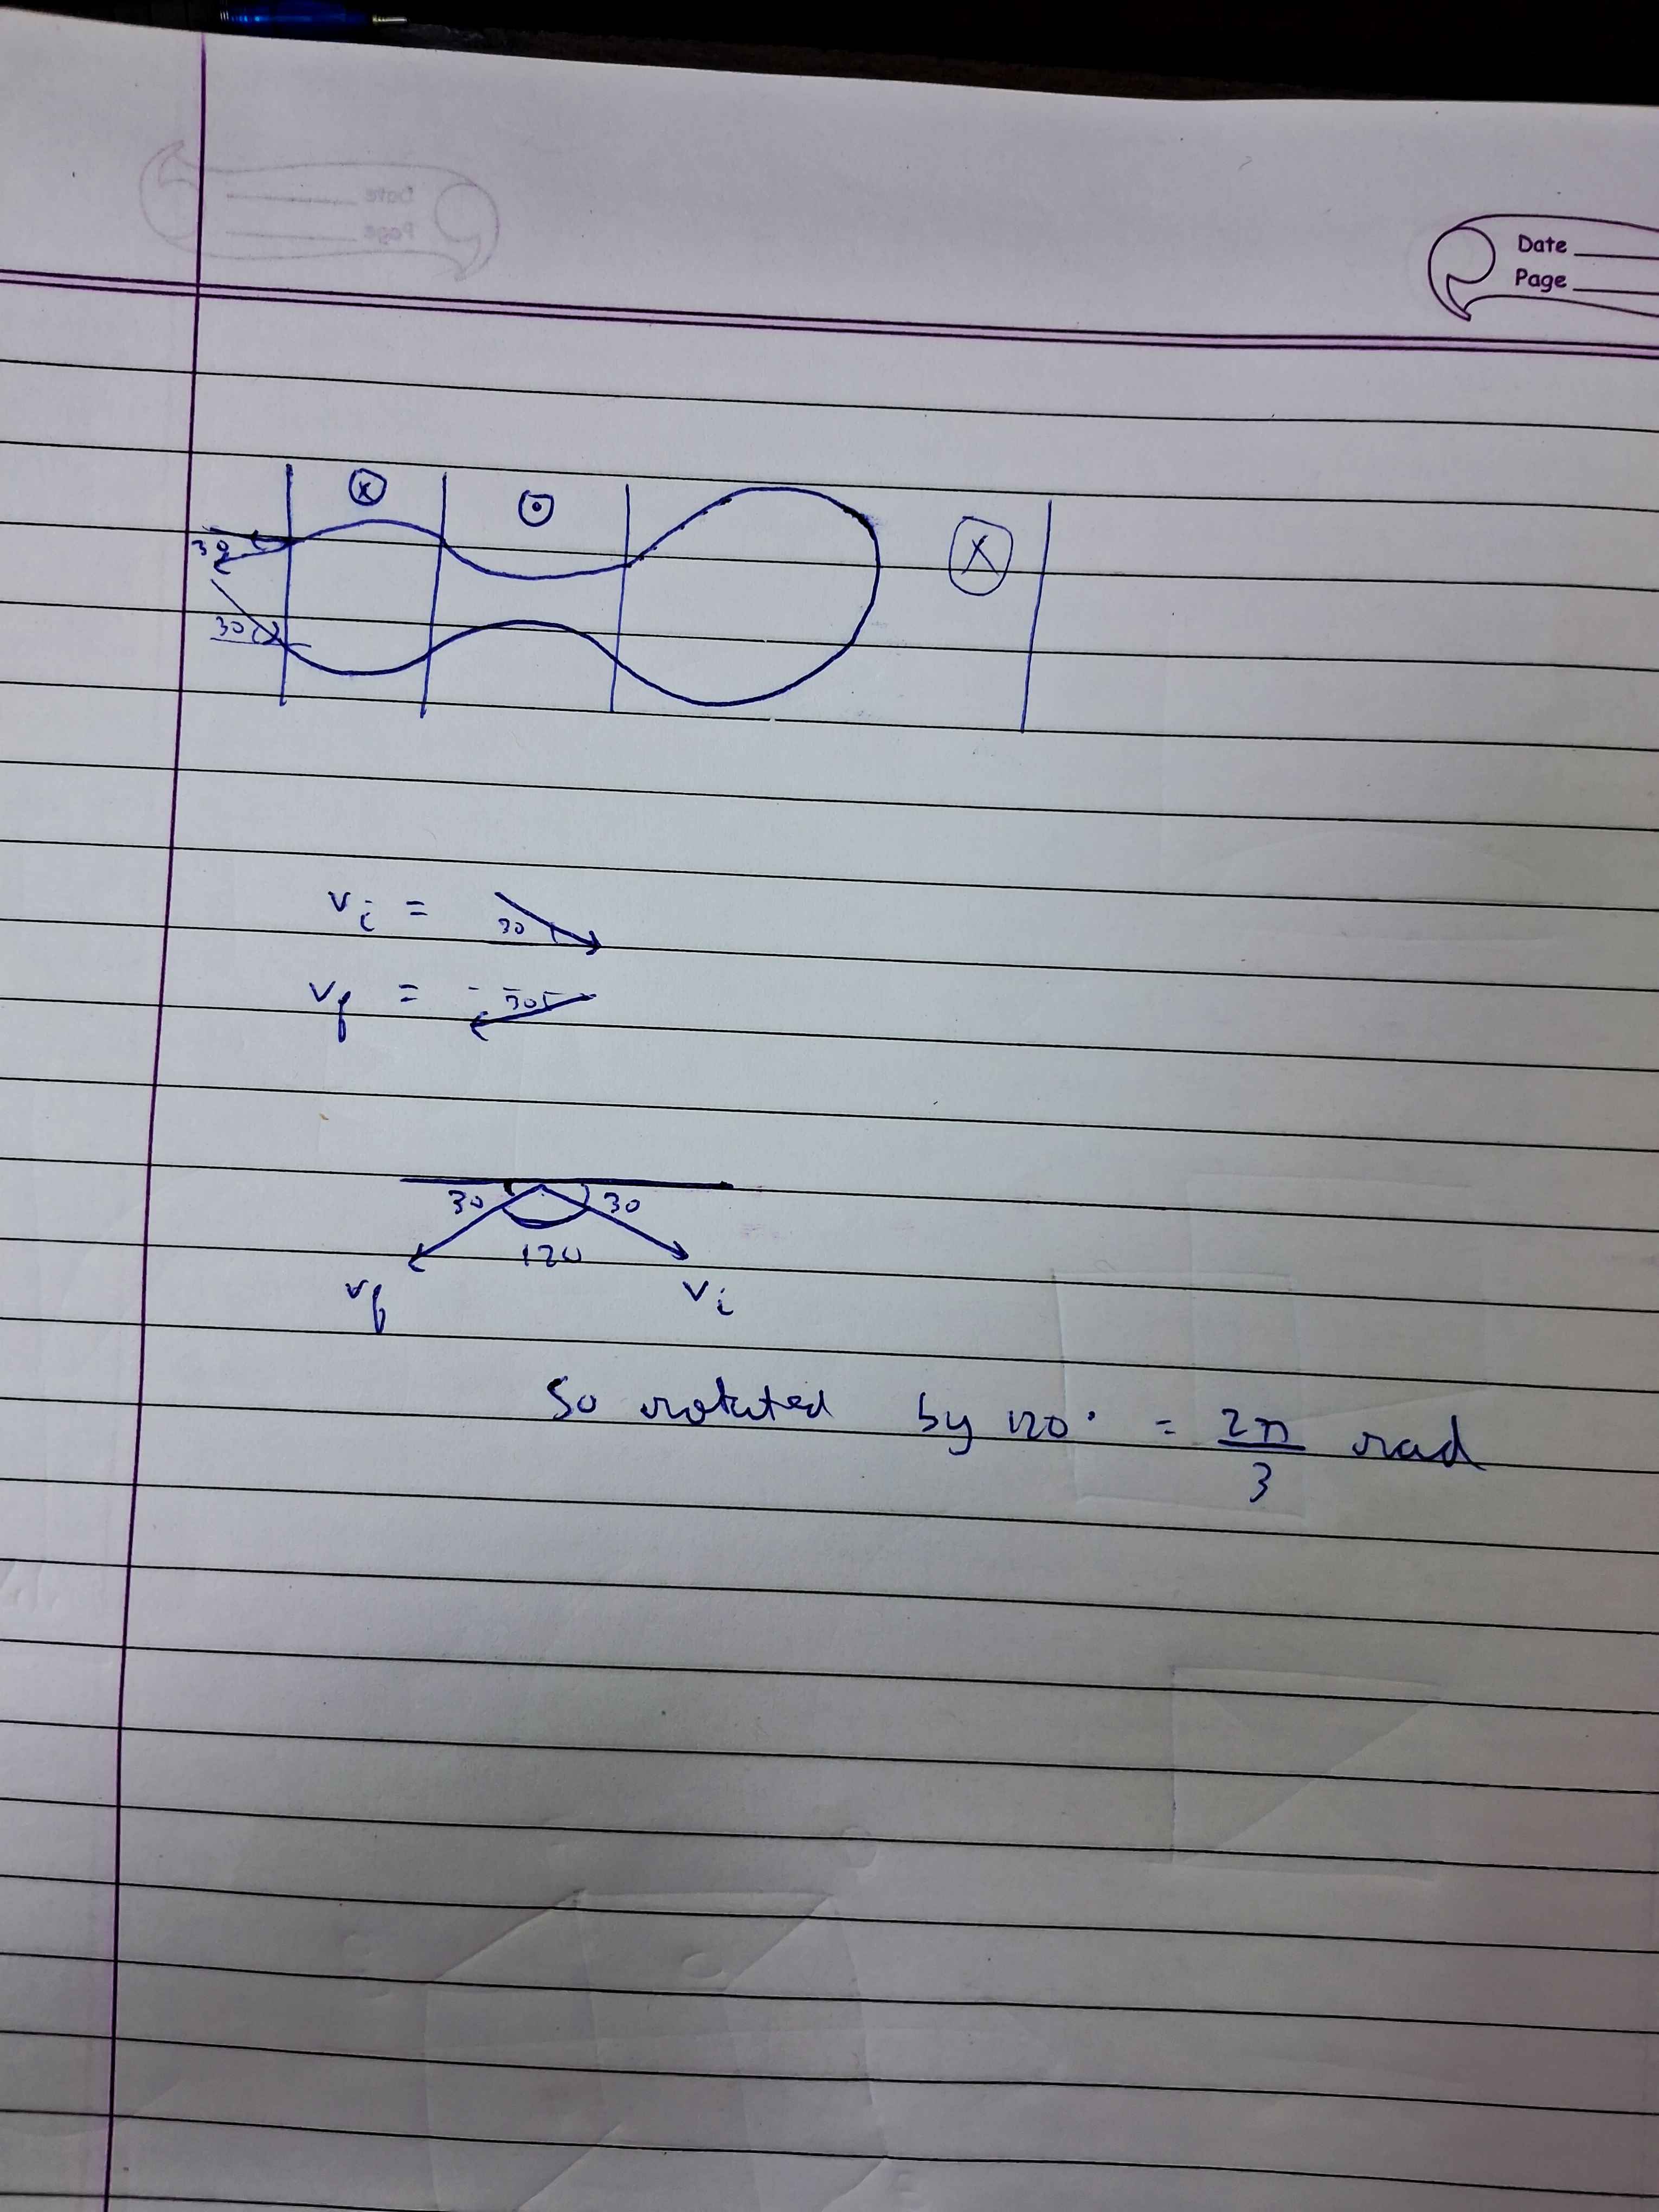 Date
Page
Date
Page
ⓧ ⊙
30 ⓧ
30
v_i = 30
v_f = 30
30 30
120
v_f v_i
So rotated by 120° = 2π/3 rad